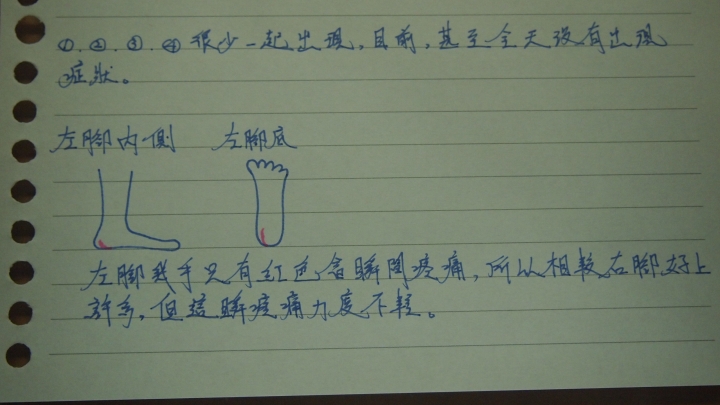 ①.②.③.④很少一起出現,目前,甚至全天沒有出現
症狀。
左腳內側 左腳底
左腳幾乎只有紅色會瞬間疼痛,所以相較右腳好上
許多,但這瞬疼痛力度不輕。